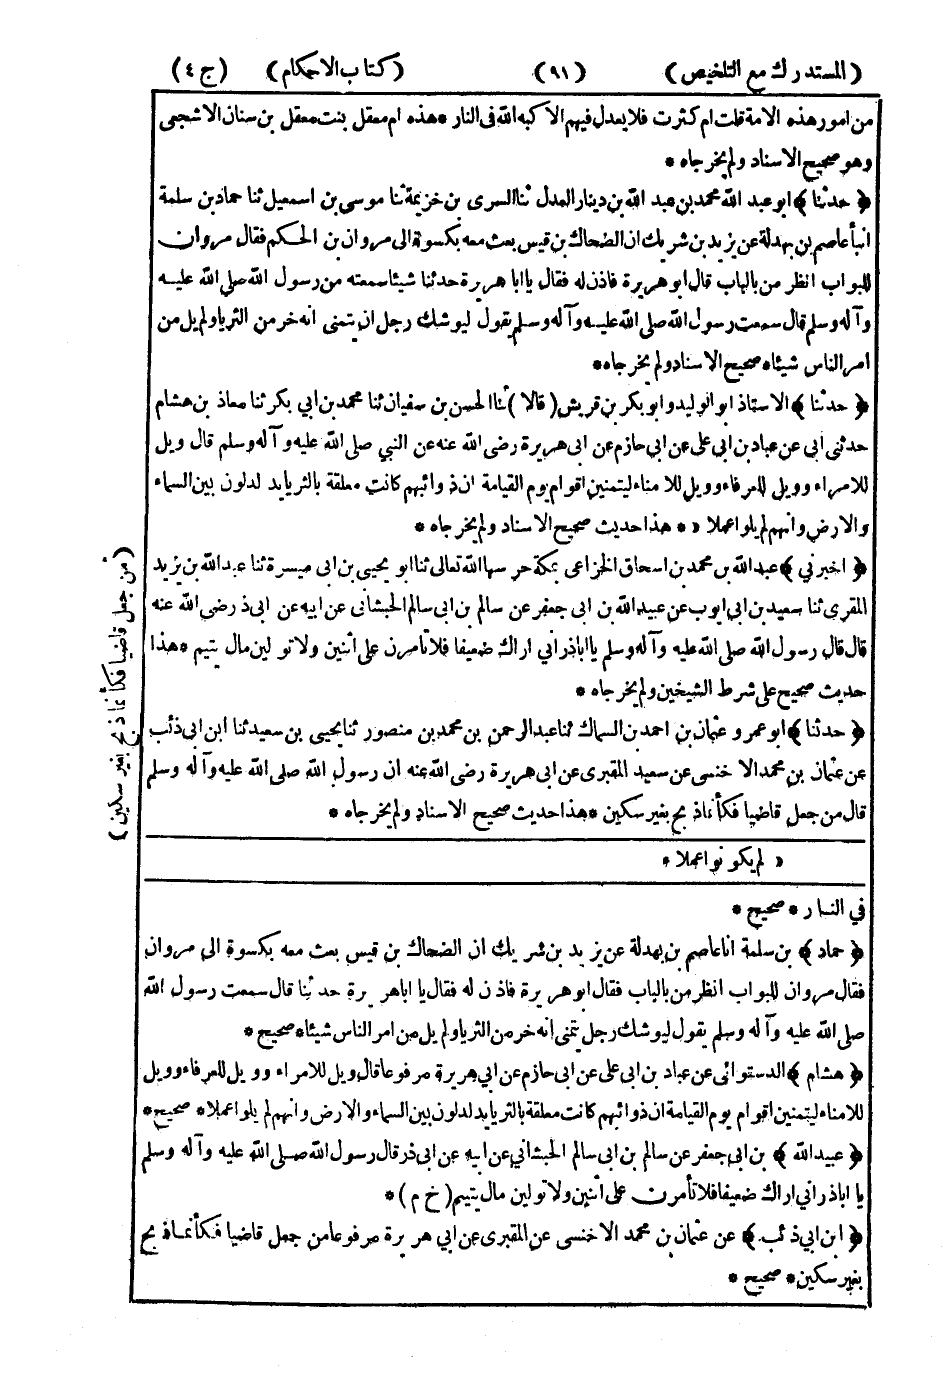 (المستدرك مع التلخيص) (٩١) (كتاب الاحكام) (ج ٤)
من امور هذه الامة قلت ام كثرت فلا يعدل فيهم الا كبه الله فى النار * هذه ام معقل بنت معقل بن سنان الاشجعى
وهو صحيح الاسناد ولم يخرجاه *
﴿ حدثنا ﴾ ابو عبد الله محمد بن عبد الله بن دينار العدل ثنا السرى بن خزيمة ثنا موسى بن اسمعيل ثنا حماد بن سلمة
انبأ عاصم بن بهدلة عن يزيد بن شريك ان الضحاك بن قيس بعث معه بكسوة الى مروان بن الحكم فقال مروان
للبواب انظر من بالباب قال ابو هريرة فاذن له فقال يا ابا هريرة حدثنا شيئا سمعته من رسول الله صلى الله عليه
وآله وسلم قال سمعت رسول الله صلى الله عليه وآله وسلم يقول ليوشك رجل ان يتمنى انه خر من الثريا ولم يل من
امر الناس شيئا * صحيح الاسناد ولم يخرجاه *
﴿ حدثنا ﴾ الاستاذ ابو الوليد و ابو بكر بن قريش (قالا) ثنا الحسن بن سفيان ثنا محمد بن ابي بكر ثنا معاذ بن هشام
حدثنى ابى عن عباد بن ابى على عن ابى حازم عن ابى هريرة رضى الله عنه عن النبي صلى الله عليه وآله وسلم قال ويل
للامراء وويل للعرفاء وويل للامناء ليتمنين اقوام يوم القيامة ان ذوائبهم كانت معلقة بالثريا يد لدلون بين السماء
والارض وانهم لم يلوا عملا « * هذا حديث صحيح الاسناد ولم يخرجاه *
﴿ اخبرني ﴾ عبد الله بن محمد بن اسحاق الخزاعى بمكة حرسها الله تعالى ثنا ابو يحيى بن ابى ميسرة ثنا عبد الله بن يزيد
المقرى ثنا سعيد بن ابى ايوب عن عبيد الله بن ابى جعفر عن سالم بن ابى سالم الجيشانى عن ابيه عن ابى ذر رضى الله عنه
قال قال رسول الله صلى الله عليه وآله وسلم يا اباذر انى اراك ضعيفا فلا تأمرن على اثنين ولا تولين مال يتيم * هذا
حديث صحيح على شرط الشيخين ولم يخرجاه *
﴿ حدثنا ﴾ ابو عمرو عثمان بن احمد بن السماك ثنا عبد الرحمن بن محمد بن منصور ثنا يحيى بن سعيد ثنا ابن ابى ذئب
عن عثمان بن محمد الاخنسى عن سعيد المقبرى عن ابى هريرة رضى الله عنه ان رسول الله صلى الله عليه وآله وسلم
قال من جعل قاضيا فكأنما ذبح بغير سكين * هذا حديث صحيح الاسناد ولم يخرجاه *
(من جعل قاضيا فكأنما ذبح بغير سكين)
« لم يكونوا عملا *
في النار * صحيح *
﴿ حماد ﴾ بن سلمة انا عاصم بن بهدلة عن يزيد بن شريك ان الضحاك بن قيس بعث معه بكسوة الى مروان
فقال مروان للبواب انظر من بالباب فقال ابو هريرة فاذن له فقال يا اباهريرة حدثنا قال سمعت رسول الله
صلى الله عليه وآله وسلم يقول ليوشك رجل يتمنى انه خر من الثريا ولم يل من امر الناس شيئا * صحيح *
﴿ هشام ﴾ الدستوائى عن عباد بن ابى على عن ابى حازم عن ابى هريرة مرفوعا قال ويل للامراء وويل للعرفاء وويل
للامناء ليتمنين اقوام يوم القيامة ان ذوائبهم كانت معلقة بالثريا يد لدلون بين السماء والارض وانهم لم يلوا عملا * صحيح *
﴿ عبيد الله ﴾ بن ابى جعفر عن سالم بن ابى سالم الجيشانى عن ابيه عن ابى ذر قال رسول الله صلى الله عليه وآله وسلم
يا اباذر انى اراك ضعيفا فلا تأمرن على اثنين ولا تولين مال يتيم (خ م) *
﴿ ابن ابى ذئب ﴾ عن عثمان بن محمد الاخنسى عن المقبرى عن ابى هريرة مرفوعا من جعل قاضيا فكأنما ذبح
بغير سكين * صحيح *